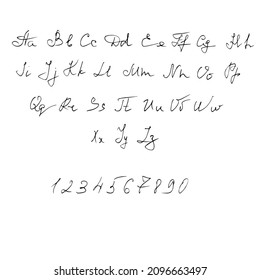 Aa Bb Cc Dd Ee Ff Gg Hh
Ii Jj Kk Ll Mm Nn Oo Pp
Qq Rr Ss Tt Uu Vv Ww
Xx Yy Zz
1 2 3 4 5 6 7 8 9 0
shutterstock.com · 2096663497